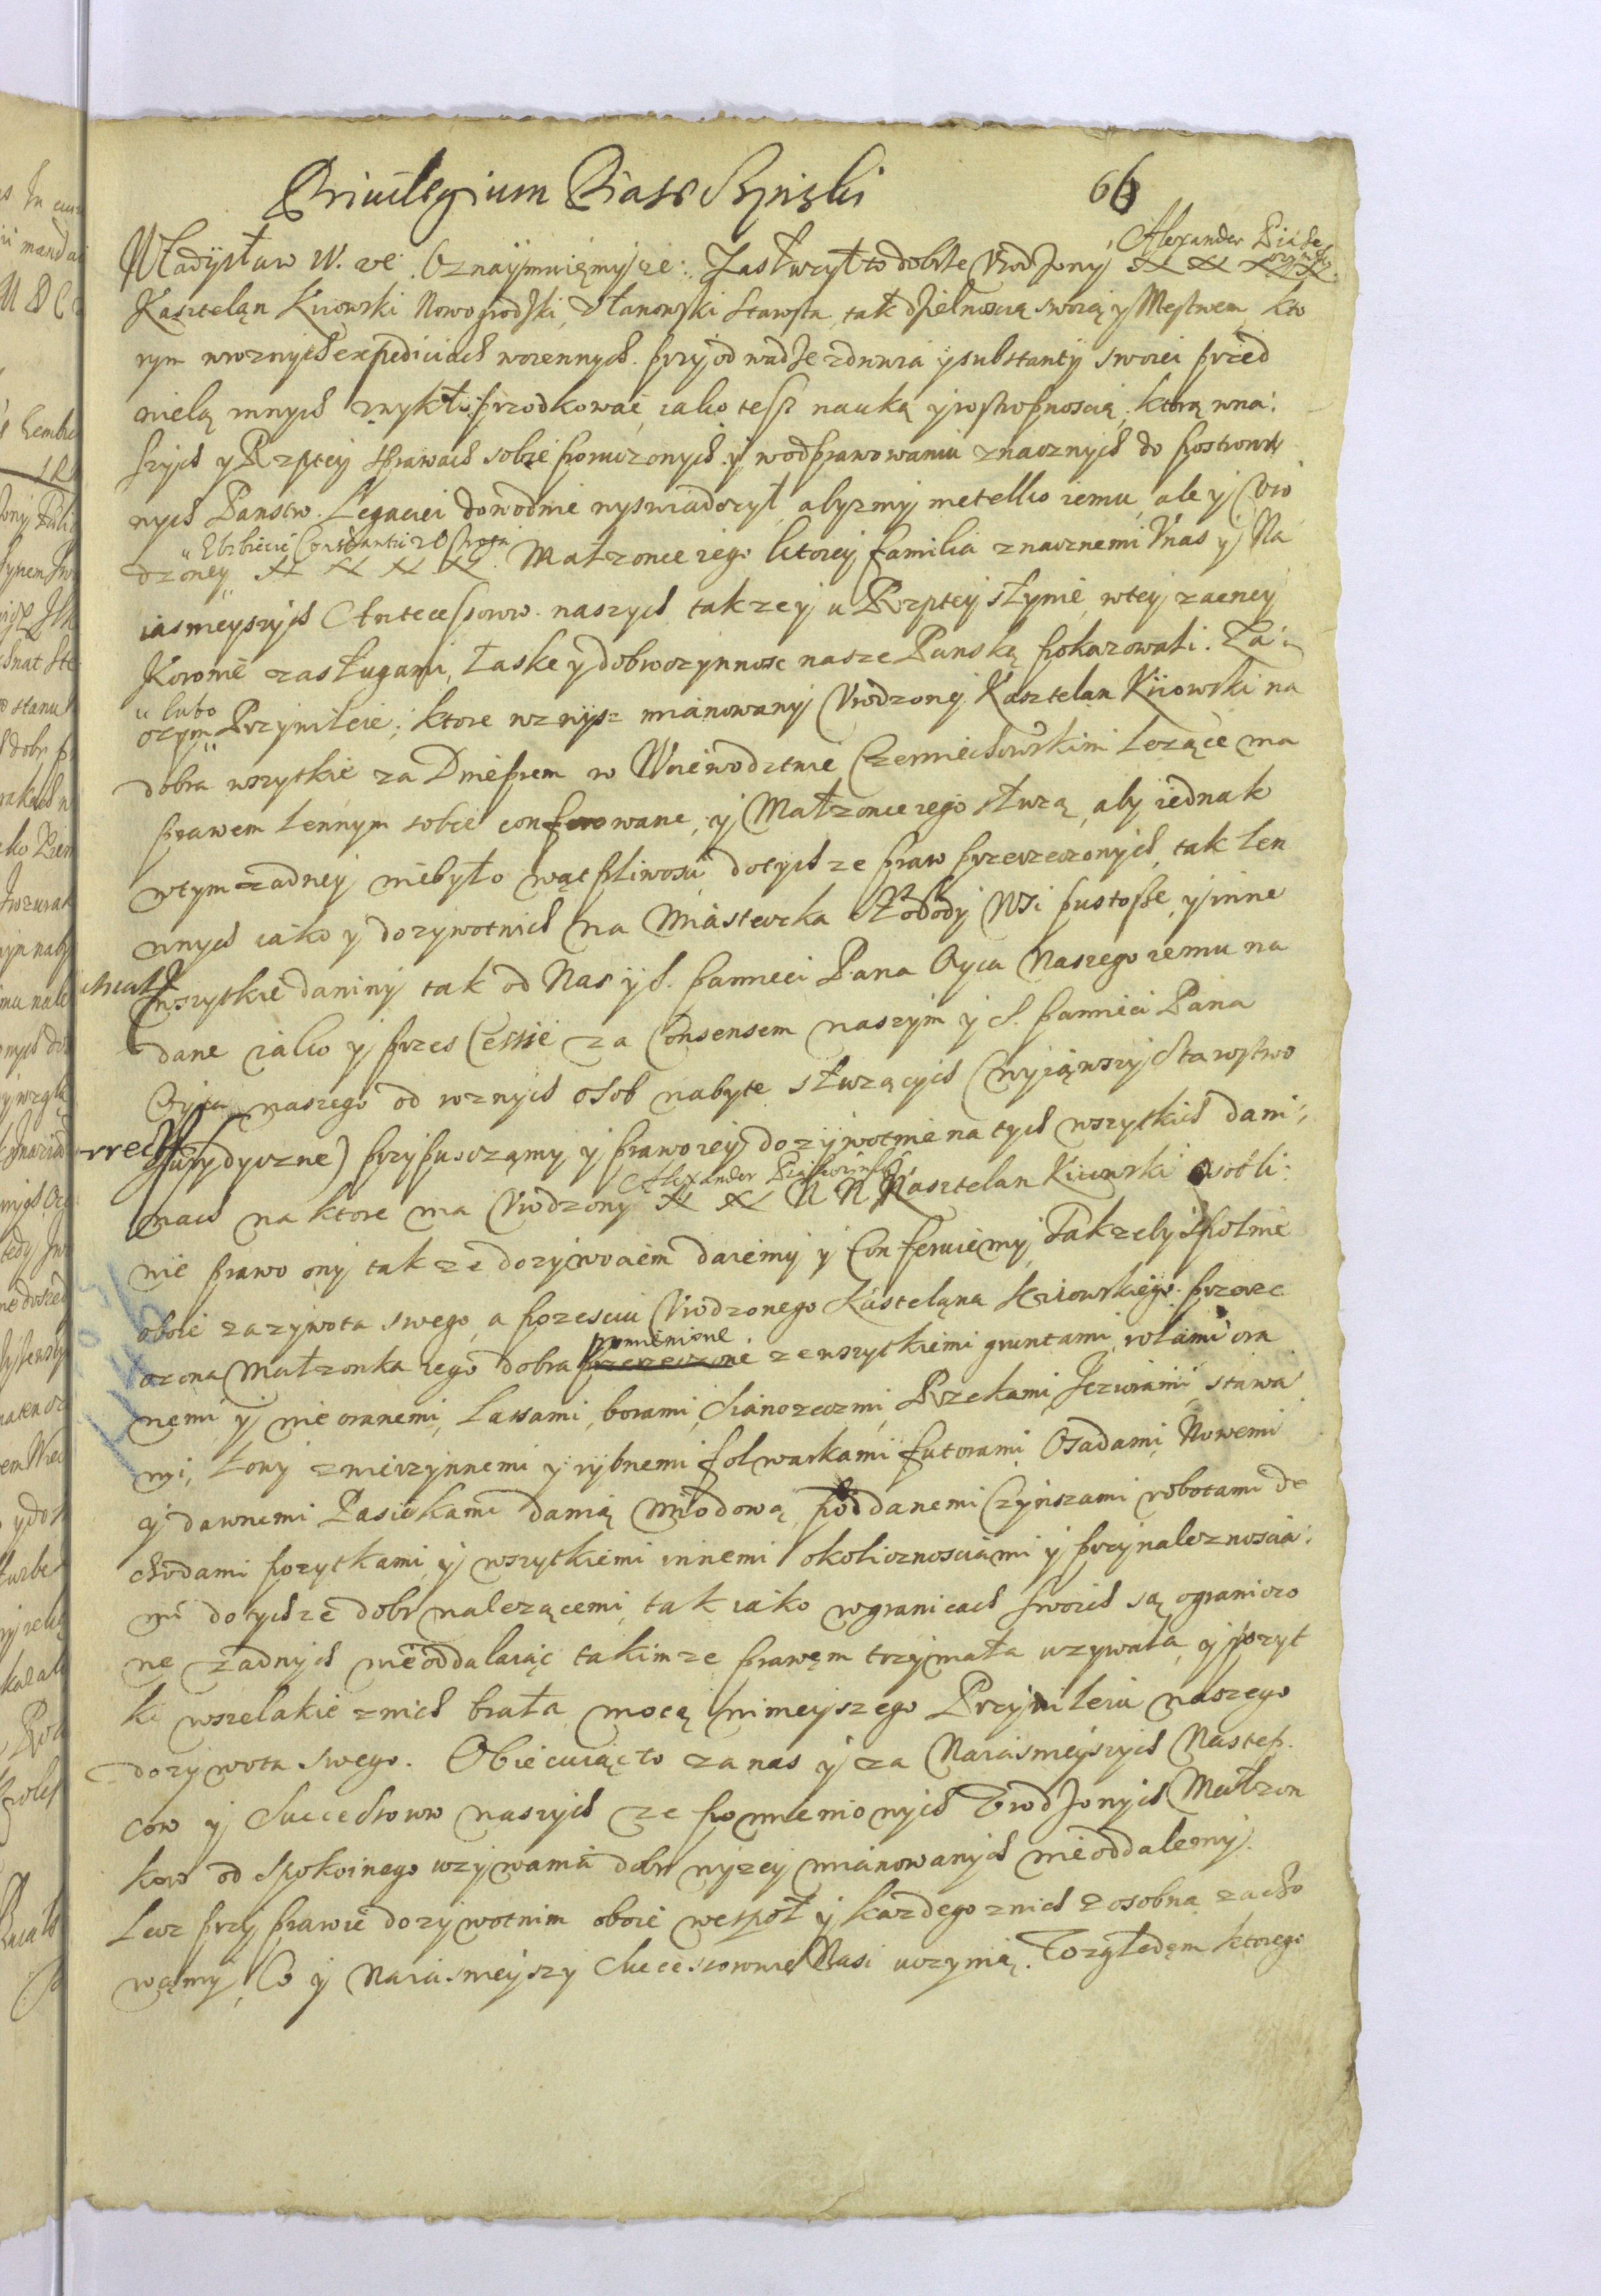 Priuilegium Piasoczinski
66
Alexander Piase
czynski
Władysław IV. etc. Oznaymuięmy ze: Zasłużył to dobrze Vrodzony xx xx xx xx
Kaszteląn Kiiowski Nowogrodzki, Vlanowski Starosta, tak dzielnoscią swoią y Męstwem, kto
rym wroznych expediciach woiennych. przy odwadze zdrowia y substantÿ swoiei przed
wielą innych zwykł przodkowac, iako tesz nauką y rostropnoscią, ktorą wna:
szych y Rzptey sprawach sobie poruczonych y wodprawowaniu znacznych do postronn
nych Panstw. Legaciei dowodnie wyswiadczył, abysmy nietelko iemu, ale y Vro
" Elzbiecie Constantii
dzoney xx xx xx xx. Małzonce iego ktorey familia znacznemi Vnas y Na
iasnieyszych Antecessorow. naszych takze y u Rzptey słynie, wtey zacney
Koronie zasługami, łaske y dobroczynnosc nasze Panską pokazowali. Za:
" lubo
czym Przywileie, ktore wzwysz mianowany Vrodzony Kasztelan Kiiowski na
dobra wszytkie za Dnieprem w Woiewodztwie Czerniechowskim lezące ma
prawem lennym sobie conferowane, y Małzonce iego słuzą, aby iednak
wtym zadney niebyło wątpliwosci dotychze praw przerzeczonych, tak len
nych iako y dozywotnich na Miasteczka Słobody Wsi pustosze, y inne
wszytkie daniny tak od Nas y S. pamieci Pana Oyca Naszego iemu na
dane iako y przes Cessie za Consensem naszym y S. pamieci Pana
Oyca naszego od roznych osob nabyte słuzących (wyiąwszy Starostwo
Jurydyczne) przypuszcząmy y prawo iey dozywotnie na tych wszytkich dani:
Alexander Piaseczinski
nach na ktore ma Vrodzony xx xx N N Kasztelan Kiiowski osobli:
nie prawo ony takze dozywociem daiemy y Conferuiemy, Takzeby społnie
oboie zazywota swego, a pozesciu Vrodzonego Kasteląna Kiiowskiego. przerze
pomienione
czona Małzonka iego dobra przerzeczone zewszytkiemi gruntami, rolami ora
nemi y nie oranemi, Lassami, borami, Sianozeczmi, Rzekami, Jeziorami, stawa
mi, Łowy zwierzynnemi y rybnemi folwarkami futorami Osadami, Nowemi
y dawnemi Pasiekami danią Miodową, poddanemi Czynszami robotami do
chodami pozytkami, y wszytkiemi innemi okolicznosciami y przynaleznoscia:
mi dotychze dobr nalezącemi, tak iako wgranicach swoich są ogranicżo
ne zadnych nieoddalaiąc takimze prawęm trzymała uzywała, y pozyt
ki wszelakie znich brała mocą ninieyszego Przywileiu naszego
dozywota swego. Obiecuiąc to zanas y za Naiasnieyszych Nastep.
cow y Successorow naszych ze pomienionych Vrodzonych Małzon
kow od spokoinego uzywania dobr wyzey mianowanych nieoddalemy.
Lecz przy prawie dozywotnim oboie wespoł y kazdego znich zosobna zacho
wąmy, Co y Naiasnieyszy Successorowie Nasi uczynią. Wzgłedęm ktorego